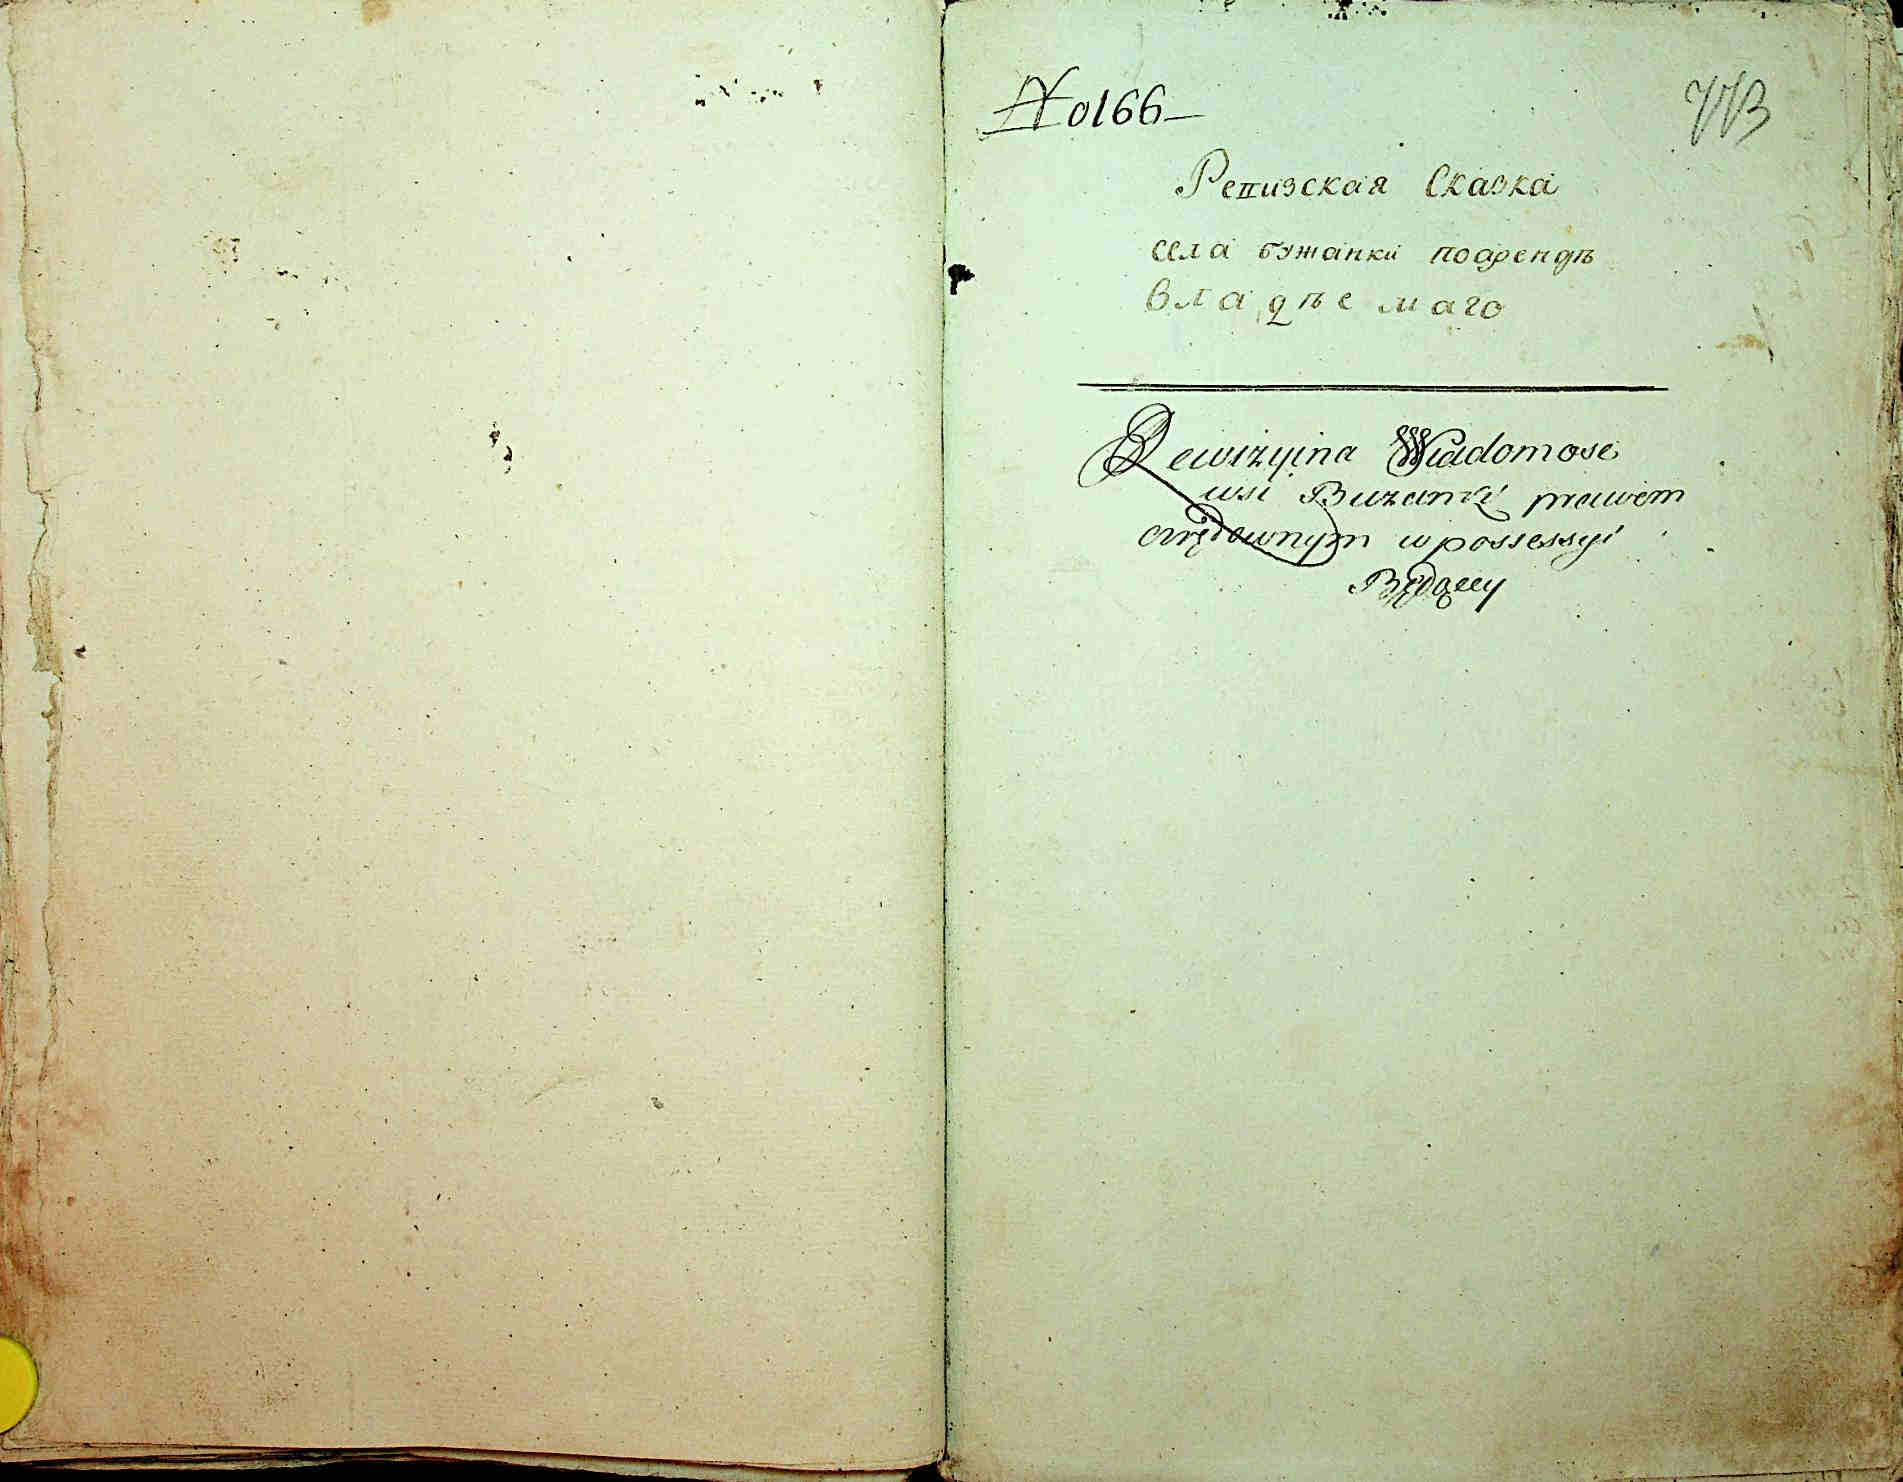 No 166
773
Ревизская Сказка
села бужанки поарендѣ
владѣемаго
Rewizyina Wiadomosc
wsi Buzanki prawem
arędownym w possessyi
Będącey